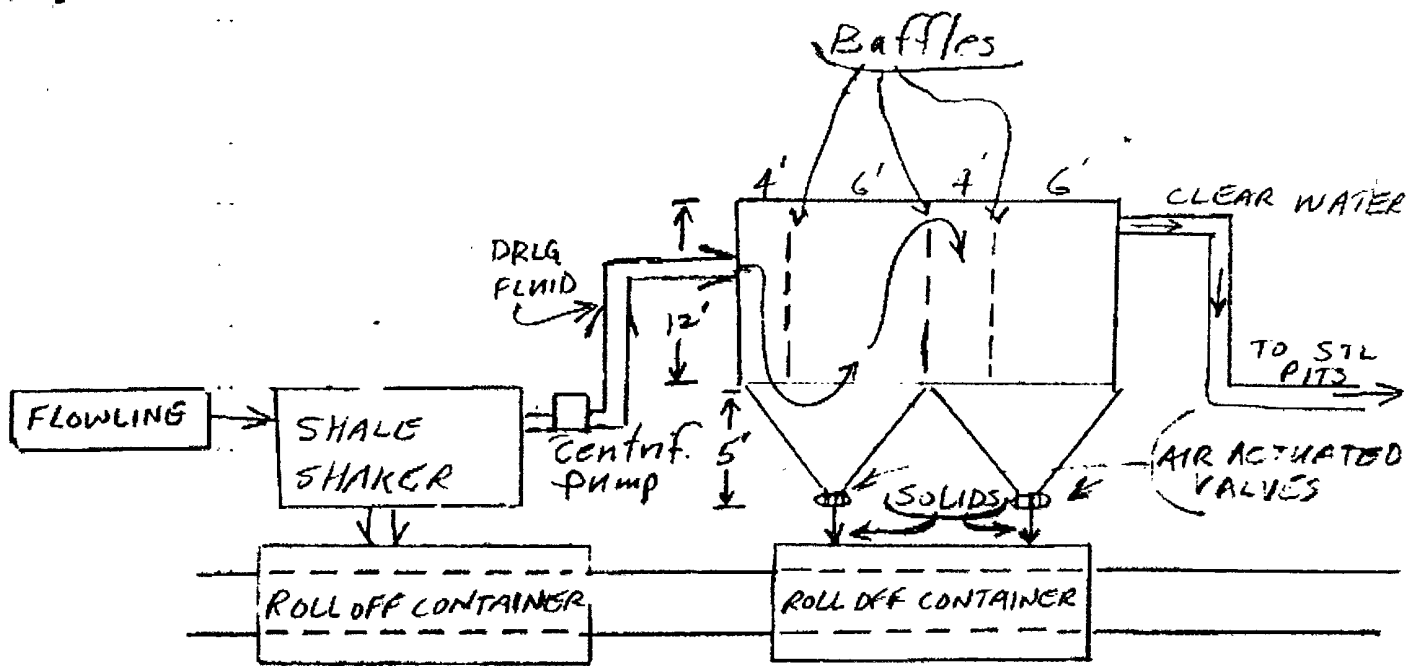 Baffles
4' 6' 4' 6'
CLEAR WATER
DRLG
FLUID
12'
TO STL
PITS
FLOWLING
SHALE
SHAKER
Centrif.
pump
5'
SOLIDS
AIR ACTUATED
VALVES
ROLL OFF CONTAINER
ROLL OFF CONTAINER